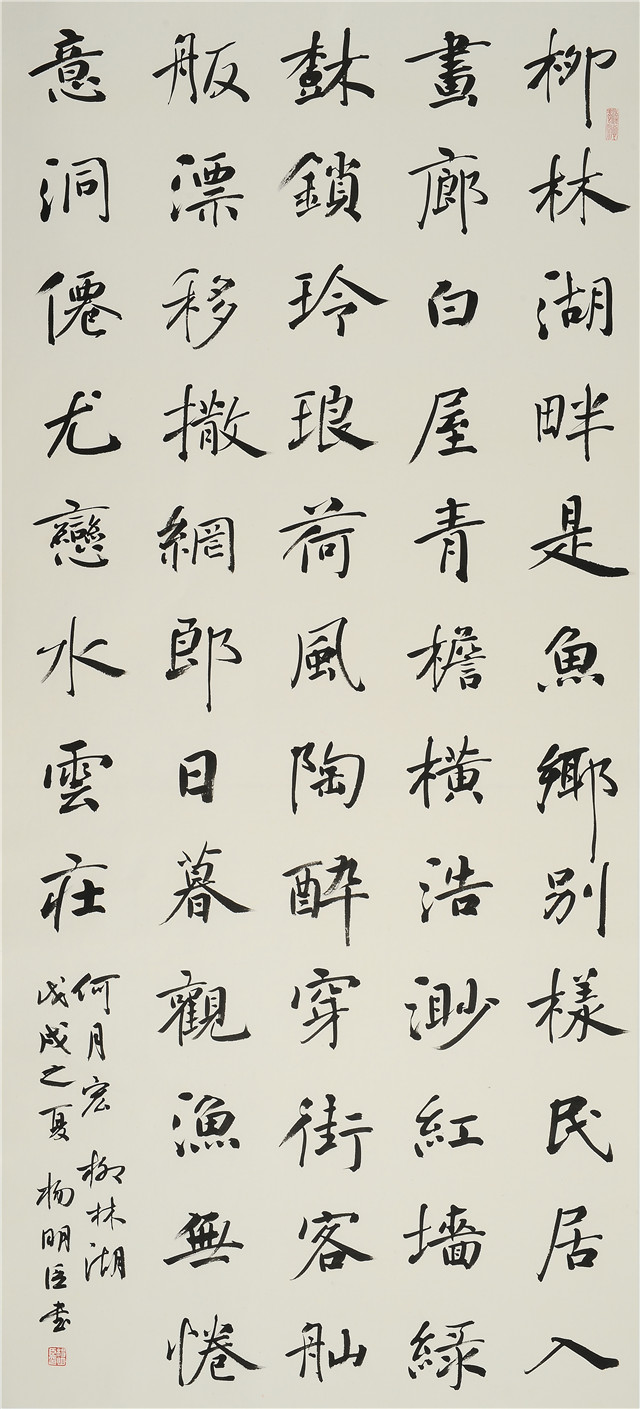 柳林湖畔是魚鄉別樣民居入
畫廊白屋青檐橫浩渺紅墻綠
樹鎖玲琅荷風陶醉穿街客舢
舨漂移撒網郎日暮觀漁無惓
意洞僊尤戀水雲庄
何月宏 柳林湖
戊戌之夏 杨明臣書